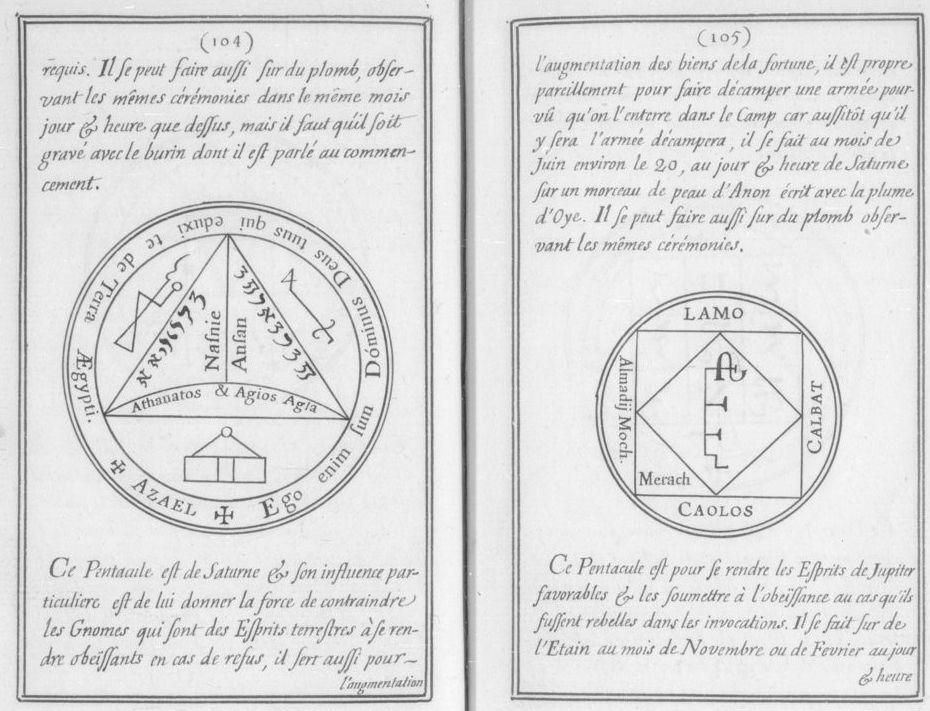 (104)
requis. Il se peut faire aussi sur du plomb, obser-
vant les mêmes cérémonies dans le même mois
jour & heure que dessus, mais il faut qu'il soit
gravé avec le burin dont il est parlé au commen-
cement.
✠ AZAEL ✠ Ego enim sum Dominus Deus tuus qui eduxi te de Terra Ægypti.
Nasnie
Ansan
Athanatos & Agios Agla
Ce Pentacule est de Saturne & son influence par-
ticuliere est de lui donner la force de contraindre
les Gnomes qui sont des Esprits terrestres à se ren-
dre obeïssants en cas de refus, il sert aussi pour
l'augmentation
(105)
l'augmentation des biens de la fortune, il est propre
pareillement pour faire décamper une armée pour-
vû qu'on l'enterre dans le Camp car aussitôt qu'il
y sera l'armée décampera, il se fait au mois de
Juin environ le 20, au jour & heure de Saturne
sur un morceau de peau d'Anon écrit avec la plume
d'Oye. Il se peut faire aussi sur du plomb obser-
vant les mêmes cérémonies.
LAMO
Almadij Moch.
CALBAT
Merach
CAOLOS
Ce Pentacule est pour se rendre les Esprits de Jupiter
favorables & les soumettre à l'obeïssance au cas qu'ils
fussent rebelles dans les invocations. Il se fait sur de
l'Etain au mois de Novembre ou de Fevrier au jour
& heure